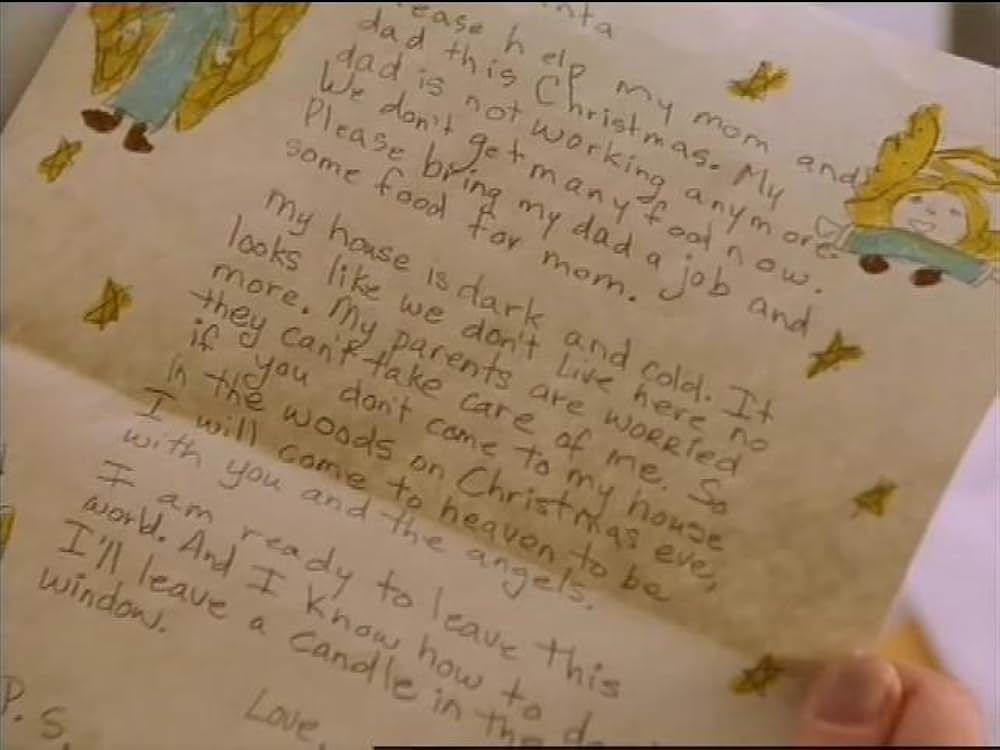 ease help my mom and
dad this Christmas. My
dad is not working anymore.
We don't get many food now.
Please bring my dad a job and
some food for mom.
My house is dark and cold. It
looks like we don't live here no
more. My parents are worried
they can't take care of me. So
if you don't come to my house
in the woods on Christmas eve,
I will come to heaven to be
with you and the angels.
I am ready to leave this
world. And I know how to
I'll leave a candle in the
window.
Love,
P. S.